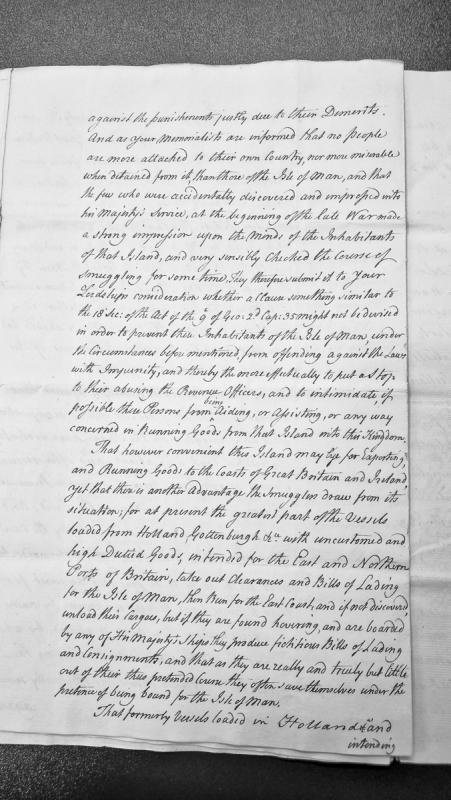 against the punishments justly due to their Demerits.
And as your Memorialists are informed that no People
are more attached to their own Country, nor more miserable
when detained from it, than those of the Isle of Man, and that
the few who were accidentally discovered and impressed into
his Majesty's Service, at the beginning of the late War made
a strong impression upon the Minds of the Inhabitants
of that Island, and very sensibly Checked the Course of
Smuggling for some time, They therefore submit it to Your
Lordships consideration whether a Clause something similar to
the 18 Sec: of the Act of the 9 of Geo: 2d Cap: 35 might not be devised
in order to prevent these Inhabitants of the Isle of Man, under
the Circumstances before mentioned, from offending against the Laws
with Impunity, and thereby the more effectually to put a stop
to their abusing the Revenue Officers, and to intimidate, if
possible these Persons from being Aiding, or Assisting, or any way
concerned in Running Goods from that Island into this Kingdom.
That however convenient this Island may be for Exporting
and Running Goods to the Coasts of Great Britain and Ireland
yet that there is another Advantage the Smugglers draw from its
situation; for at present the greatest part of the Vessels
loaded from Holland, Gottenburgh &ca with uncustomed and
high Dutied Goods, intended for the East and Northern
Ports of Britain, take out Clearances and Bills of Lading
for the Isle of Man, then Run for the East Coast, and if not discovered
unload their Cargoes, but if they are found hovering, and are boarded
by any of His Majesty's Ships they produce fictitious Bills of Lading
and Consignments, and that as they are really and truely but little
out of their thus pretended Course they often save themselves under the
pretence of being bound for the Isle of Man.
That formerly Vessels loaded in Holland &ca and
intending